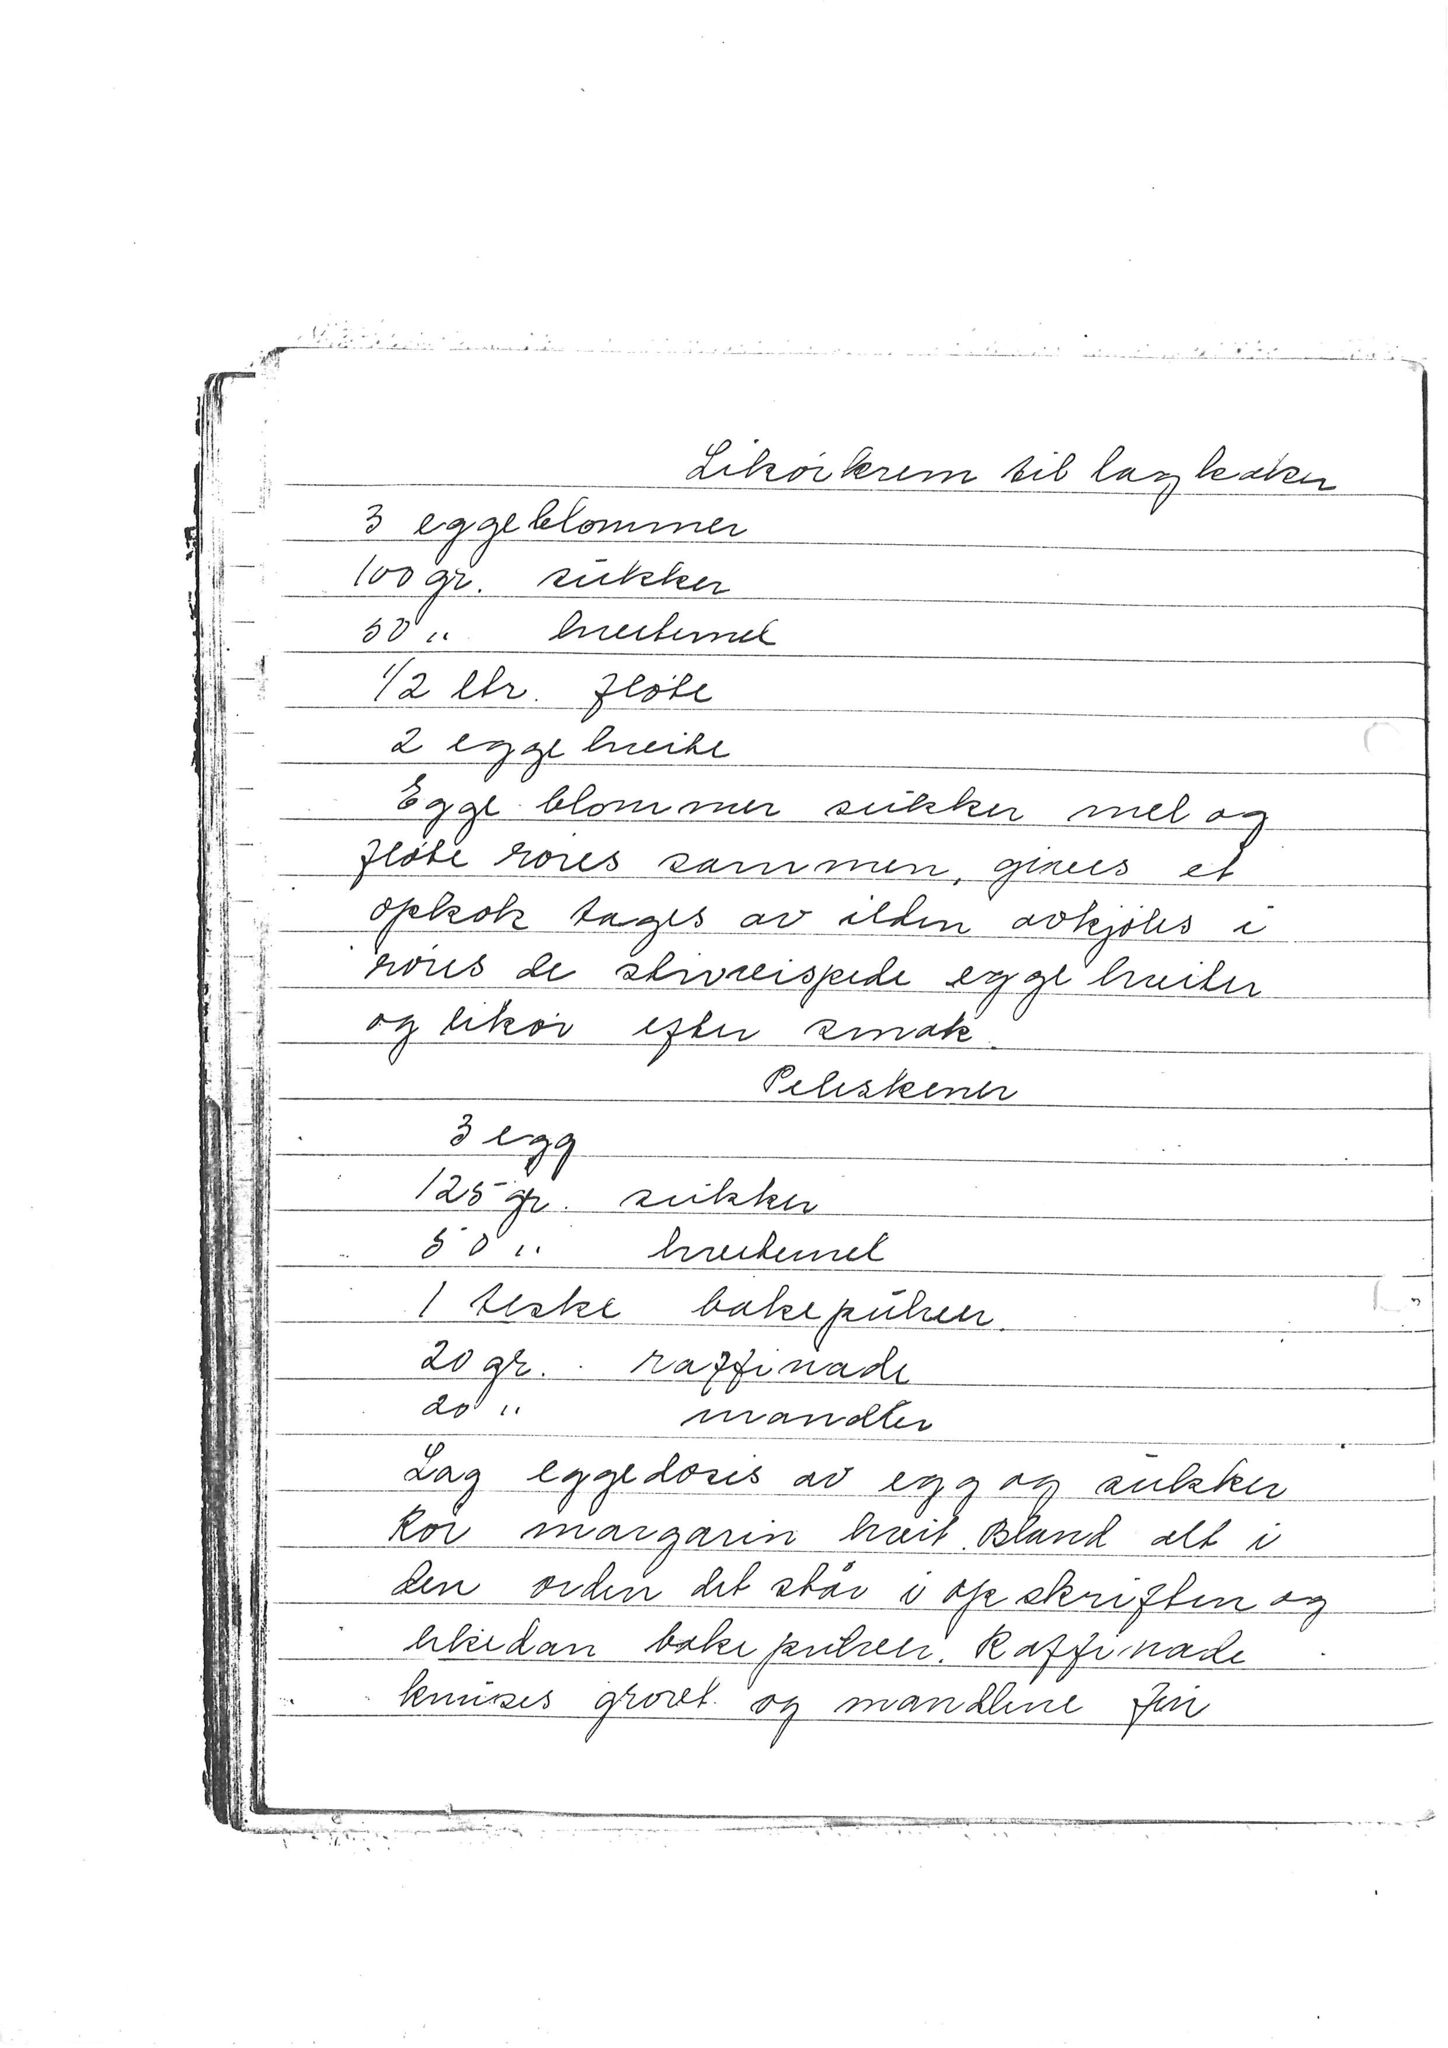 Likörkrem til lagkaker
3 eggeblommer
100 gr. sukker
50 " hvetemel
1/2 ltr. fløte
2 eggehveite
Egge blommer sukker mel og
fløte røres sammen, gives et
opkok tages av ilden avkjøles i
røres de stivveispede egge hveiter
og likör efter smak.
Peleskener
3 egg
125 gr. sukker
50 " hvetemel
1 teske bakepulver.
20 gr. raffinade
20 " mandler
Lag eggedosis av egg og sukker
Rör margarin hveit. Bland alt i
den orden det står i opskriften og
likedan bakepulver. Raffinade
knuses grovt og mandlene fin